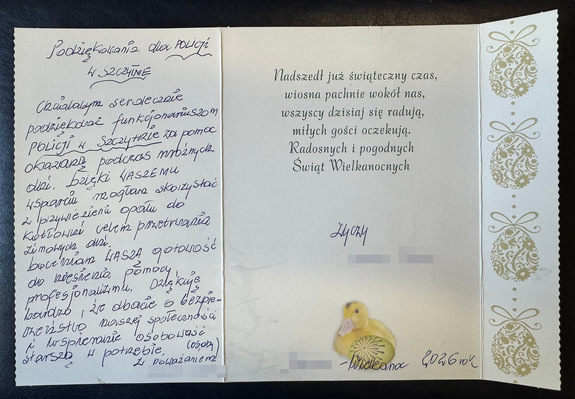 Podziękowania dla POLICJI
W SZCZYTNIE
Chciałabym serdecznie
podziękować funkcjonariuszom
POLICJI w Szczytnie za pomoc
okazaną podczas mroźnych
dni. Dzięki WASZEMU
wsparciu mogłam skorzystać
z przywiezienia opału do
kotłowni celem przetrwania
zimowych dni.
Doceniam WASZĄ gotowość
do niesienia pomocy i
profesjonalizmu. Dziękuję
bardzo, że dbacie o bezpie-
czeństwo naszej społeczności
i wspieranie osobowość
starszą w potrzebie. (osoby)
z poważaniem
Nadszedł już świąteczny czas,
wiosna pachnie wokół nas,
wszyscy dzisiaj się radują,
miłych gości oczekują.
Radosnych i pogodnych
Świąt Wielkanocnych
Życzy
-Wielkanoc 2026 rok